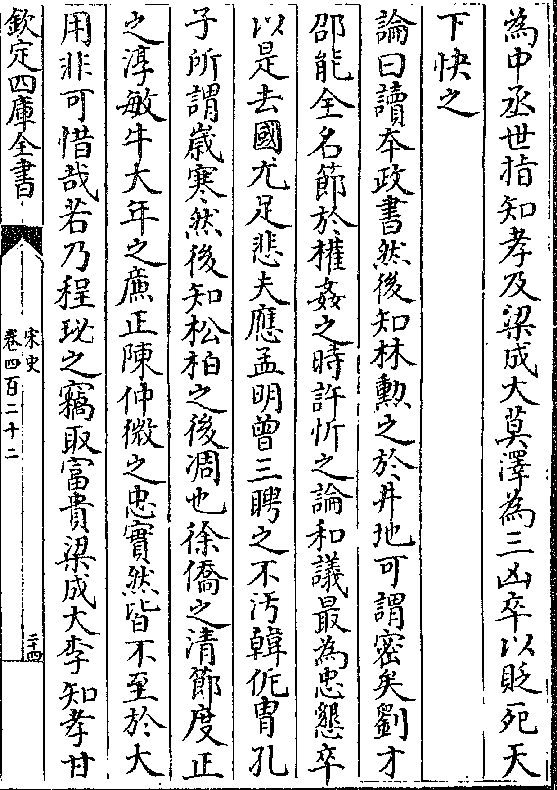 為中丞世指知孝及梁成大莫澤為三凶卒以貶死天
下快之
論曰讀本政書然後知林勲之於井地可謂密矣劉才
邵能全名節於權姦之時許忻之論和議最為忠懇卒
以是去國尤足悲夫應孟明曾三聘之不汚韓侂胄孔
子所謂歲寒然後知松柏之後凋也徐僑之清節度正
之淳敏牛大年之廉正陳仲微之忠實然皆不至於大
用非可惜哉若乃程珌之竊取富貴梁成大李知孝甘
欽定四庫全書
宋史
卷四百二十二
二十四